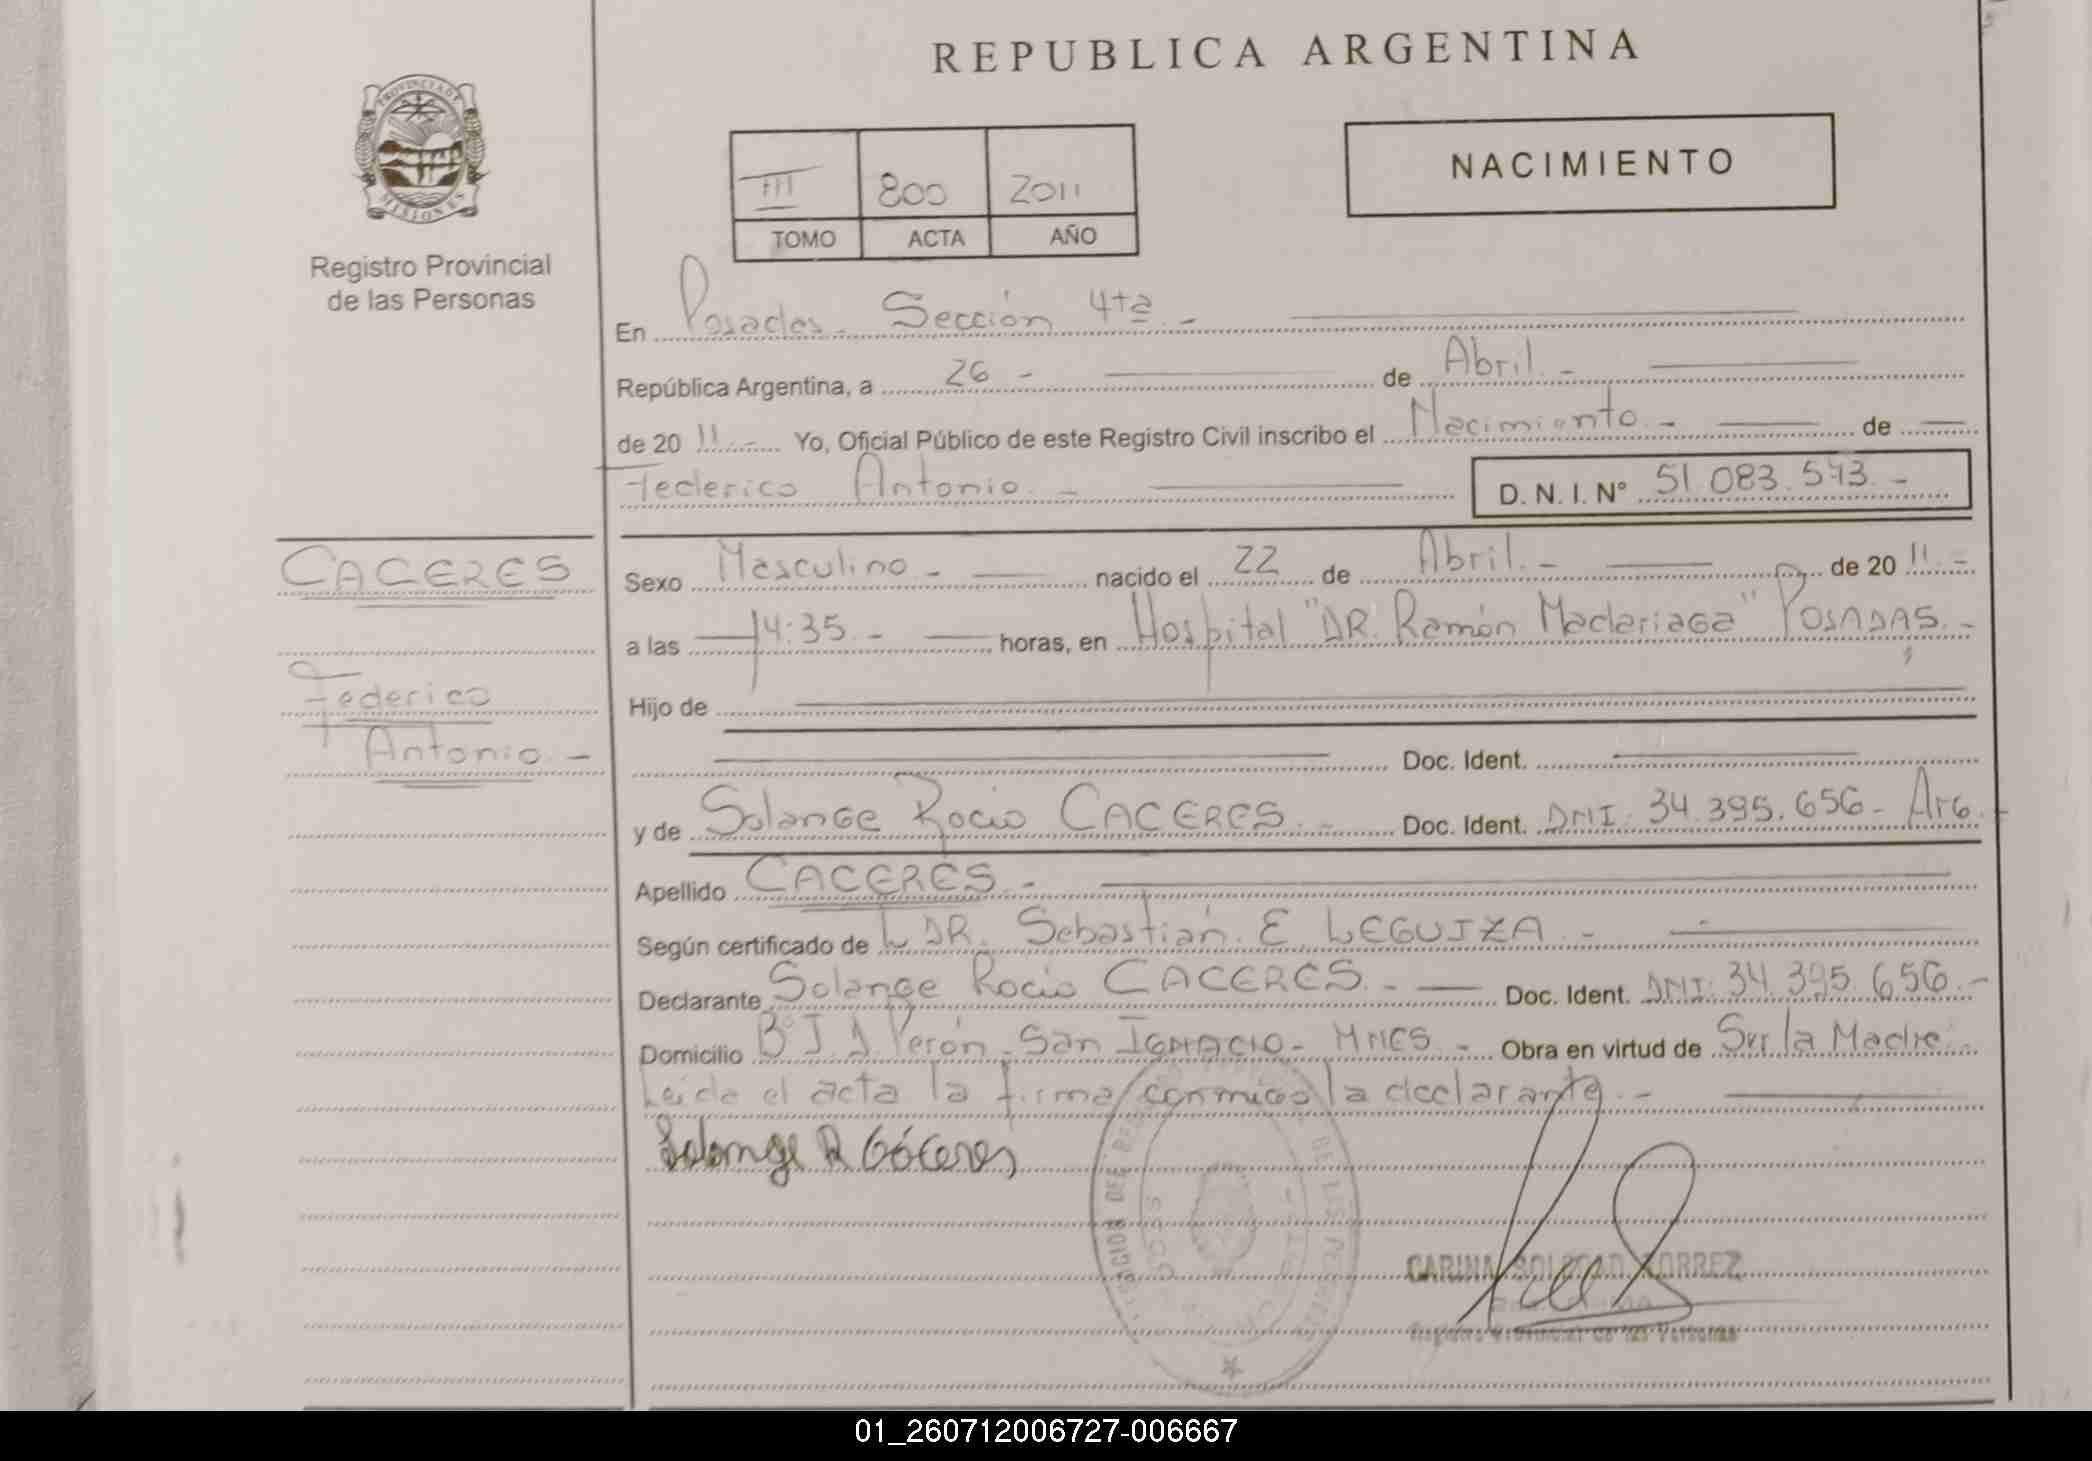 REPUBLICA ARGENTINA
PROVINCIA DE MISIONES
Registro Provincial
de las Personas
III 800 2011
TOMO ACTA AÑO
NACIMIENTO
En Posadas - Sección 4ta. -
República Argentina, a 26 - de Abril. -
de 20 11. - Yo, Oficial Público de este Registro Civil inscribo el Nacimiento. - de
Federico Antonio. - D. N. I. Nº 51.083.543. -
CACERES
Federico
Antonio. -
Sexo Masculino. - nacido el 22 de Abril. - de 20 11. -
a las 14:35. - horas, en Hospital "DR. Ramón Madariaga" POSADAS. -
Hijo de
Doc. Ident.
y de Solange Rocio CACERES. - Doc. Ident. DNI. 34.395.656 - Arg.
Apellido CACERES. -
Según certificado de DR. Sebastián E LEGUIZA. -
Declarante Solange Rocio CACERES. - Doc. Ident. DNI: 34.395.656. -
Domicilio Bº J. D. Perón - San IGNACIO - MNES. - Obra en virtud de Ser la Madre
Leida el acta la firma conmigo la declarante. -
Solange R Cáceres
CARINA SOLEDAD TORREZ
Registro Provincial de las Personas
01_260712006727-006667